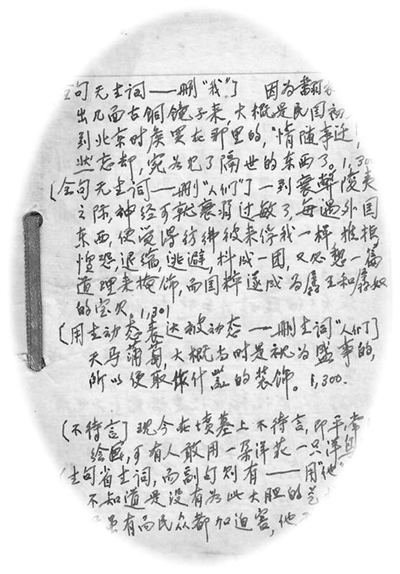 全句无主词——删“我”] 因为翻
出几面古铜镜子来，大概是民国初
到北京时候买在那里的，“情随事迁
然忘却，宛若见了隔世的东西了。1,30
[全句无主词——删“人们”] 一到衰弊陵夷
之际，神经可就衰弱过敏了，每遇外国
东西，便觉得仿彿彼来俘我一样，推拒，
惶恐，退缩，逃避，抖成一团，又必想一篇
道理来掩饰，而国粹遂成为孱王和孱奴
的宝贝。1,301
[用主动态表达被动态——删主词“人们”]
天马蒲萄，大概当时是视为盛事的，
所以便取作什器的装饰。1,300.
[不待言] 现今在坟墓上不待言，即平常
绘画，可有人敢用一朵洋花一只洋
主句省主词，而副句则有——用“他
不知道是没有为此大胆的
虽有而民众都加迫害，他